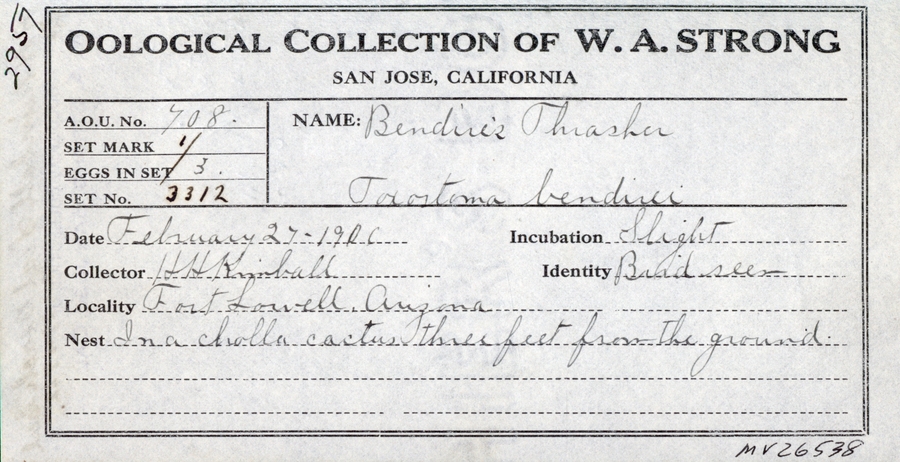 2957
OOLOGICAL COLLECTION OF W. A. STRONG
SAN JOSE, CALIFORNIA
A.O.U. No. 708.
SET MARK 1/
EGGS IN SET 3.
SET No. 3312
NAME: Bendire's Thrasher
Toxostoma bendirei
Date February 27-1900
Incubation Slight
Collector H H Kimball
Identity Bird seen
Locality Fort Lowell, Arizona
Nest In a cholla cactus three feet from the ground.
MV26538